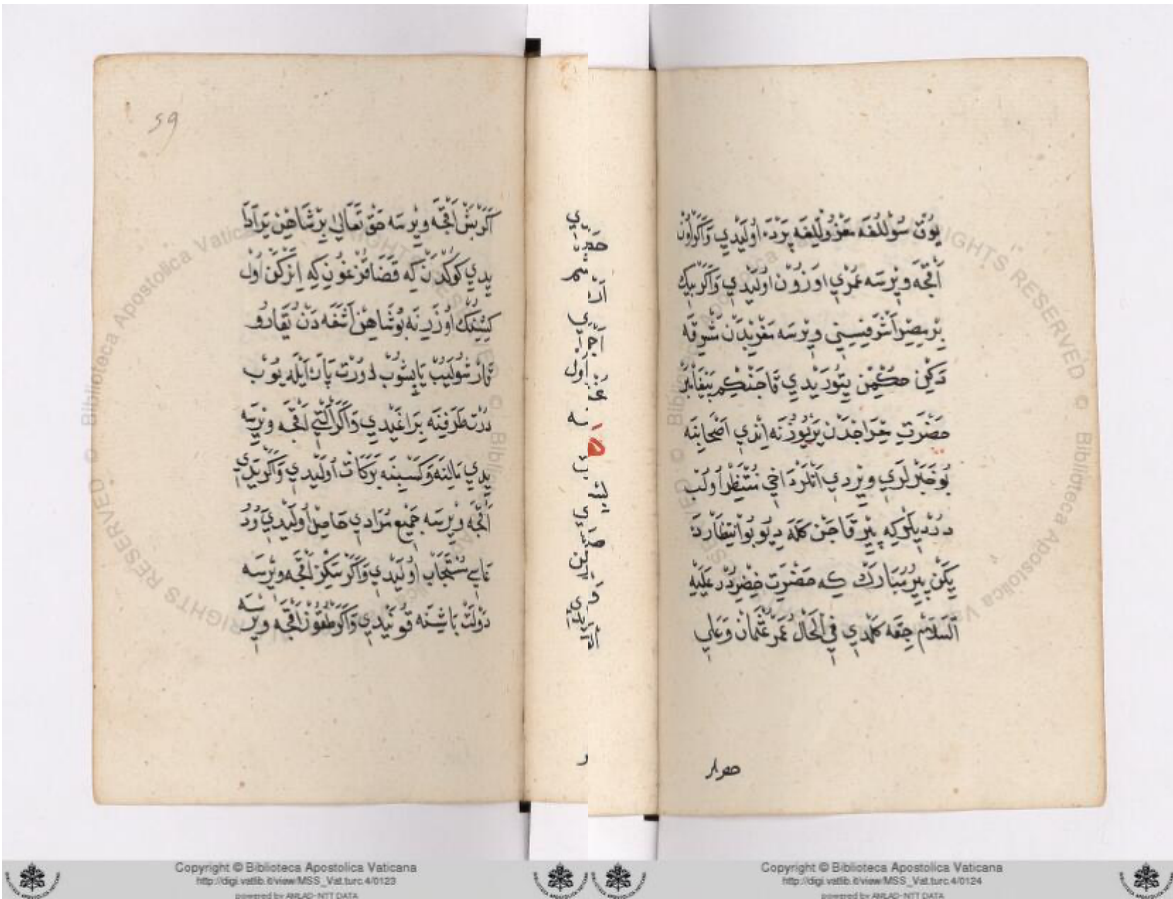 59
اكر بش اقچه ويرسه حق تعالى بر شاهن يرادا
يدي كوكدن كه قضا قزغون كه ايزكن اول
اوزرينه بو شاهن اشغه دن يقارو
ياپشوب دورت پاره ايله يوب
درت طرفينه براغيدي واكر التي اقچه ويرسه
يدي مالينه وكسيفه بركات اوليدي واكر يدي
اقچه ويرسه جميع مرادي حاصل اوليدي ودُ
مستجاب اوليدي واكر سكز اقچه ويرسه
دولت باشينه قونيدي واكر طقوز اقچه ويرسه
پرده اوليدي واكر اون
اقچه ويرسه عمري اوزون اوليدي واكر بيك
بر مصر اشرفيسني ويرسه مغربدن شرقه
دكين حكمن يتوريدي تا چنكم پيغامبر
حضرت معراجدن يريوزنه اندي اصحابنه
بو خبرلري ويردي انلر داخي منتظر اولب
كه پير قاچن كله ديو بو انتظارده
يكن پير مبارك كه حضرت خضردر عليه
السلام چقه كلدي في الحال عمر عثمان وعلي
Copyright © Biblioteca Apostolica Vaticana
http://digi.vatlib.it/view/MSS_Vat.turc.4/0123
powered by AMLAD-NTT DATA
Copyright © Biblioteca Apostolica Vaticana
http://digi.vatlib.it/view/MSS_Vat.turc.4/0124
powered by AMLAD-NTT DATA